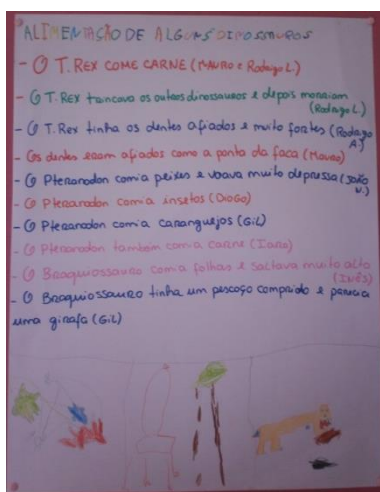 ALIMENTAÇÃO DE ALGUNS DINOSSAUROS
- O T.REX COME CARNE (MAURO e Rodrigo L.)
- O T.REX trincava os outros dinossauros e depois morriam
(Rodrigo L.)
- O T.Rex tinha os dentes afiados e muito fortes (Rodrigo
A.)
- Os dentes eram afiados como a ponta da faca (Mauro)
- O Pteranodon comia peixes e voava muito depressa (João
V.)
- O Pteranodon comia insetos (Diogo)
- O Pteranodon comia caranguejos (Gil)
- O Pteranodon também comia carne (Iara)
- O Braquiossauro comia folhas e saltava muito alto
(Inês)
- O Braquiossauro tinha um pescoço comprido e parecia
uma girafa (Gil)